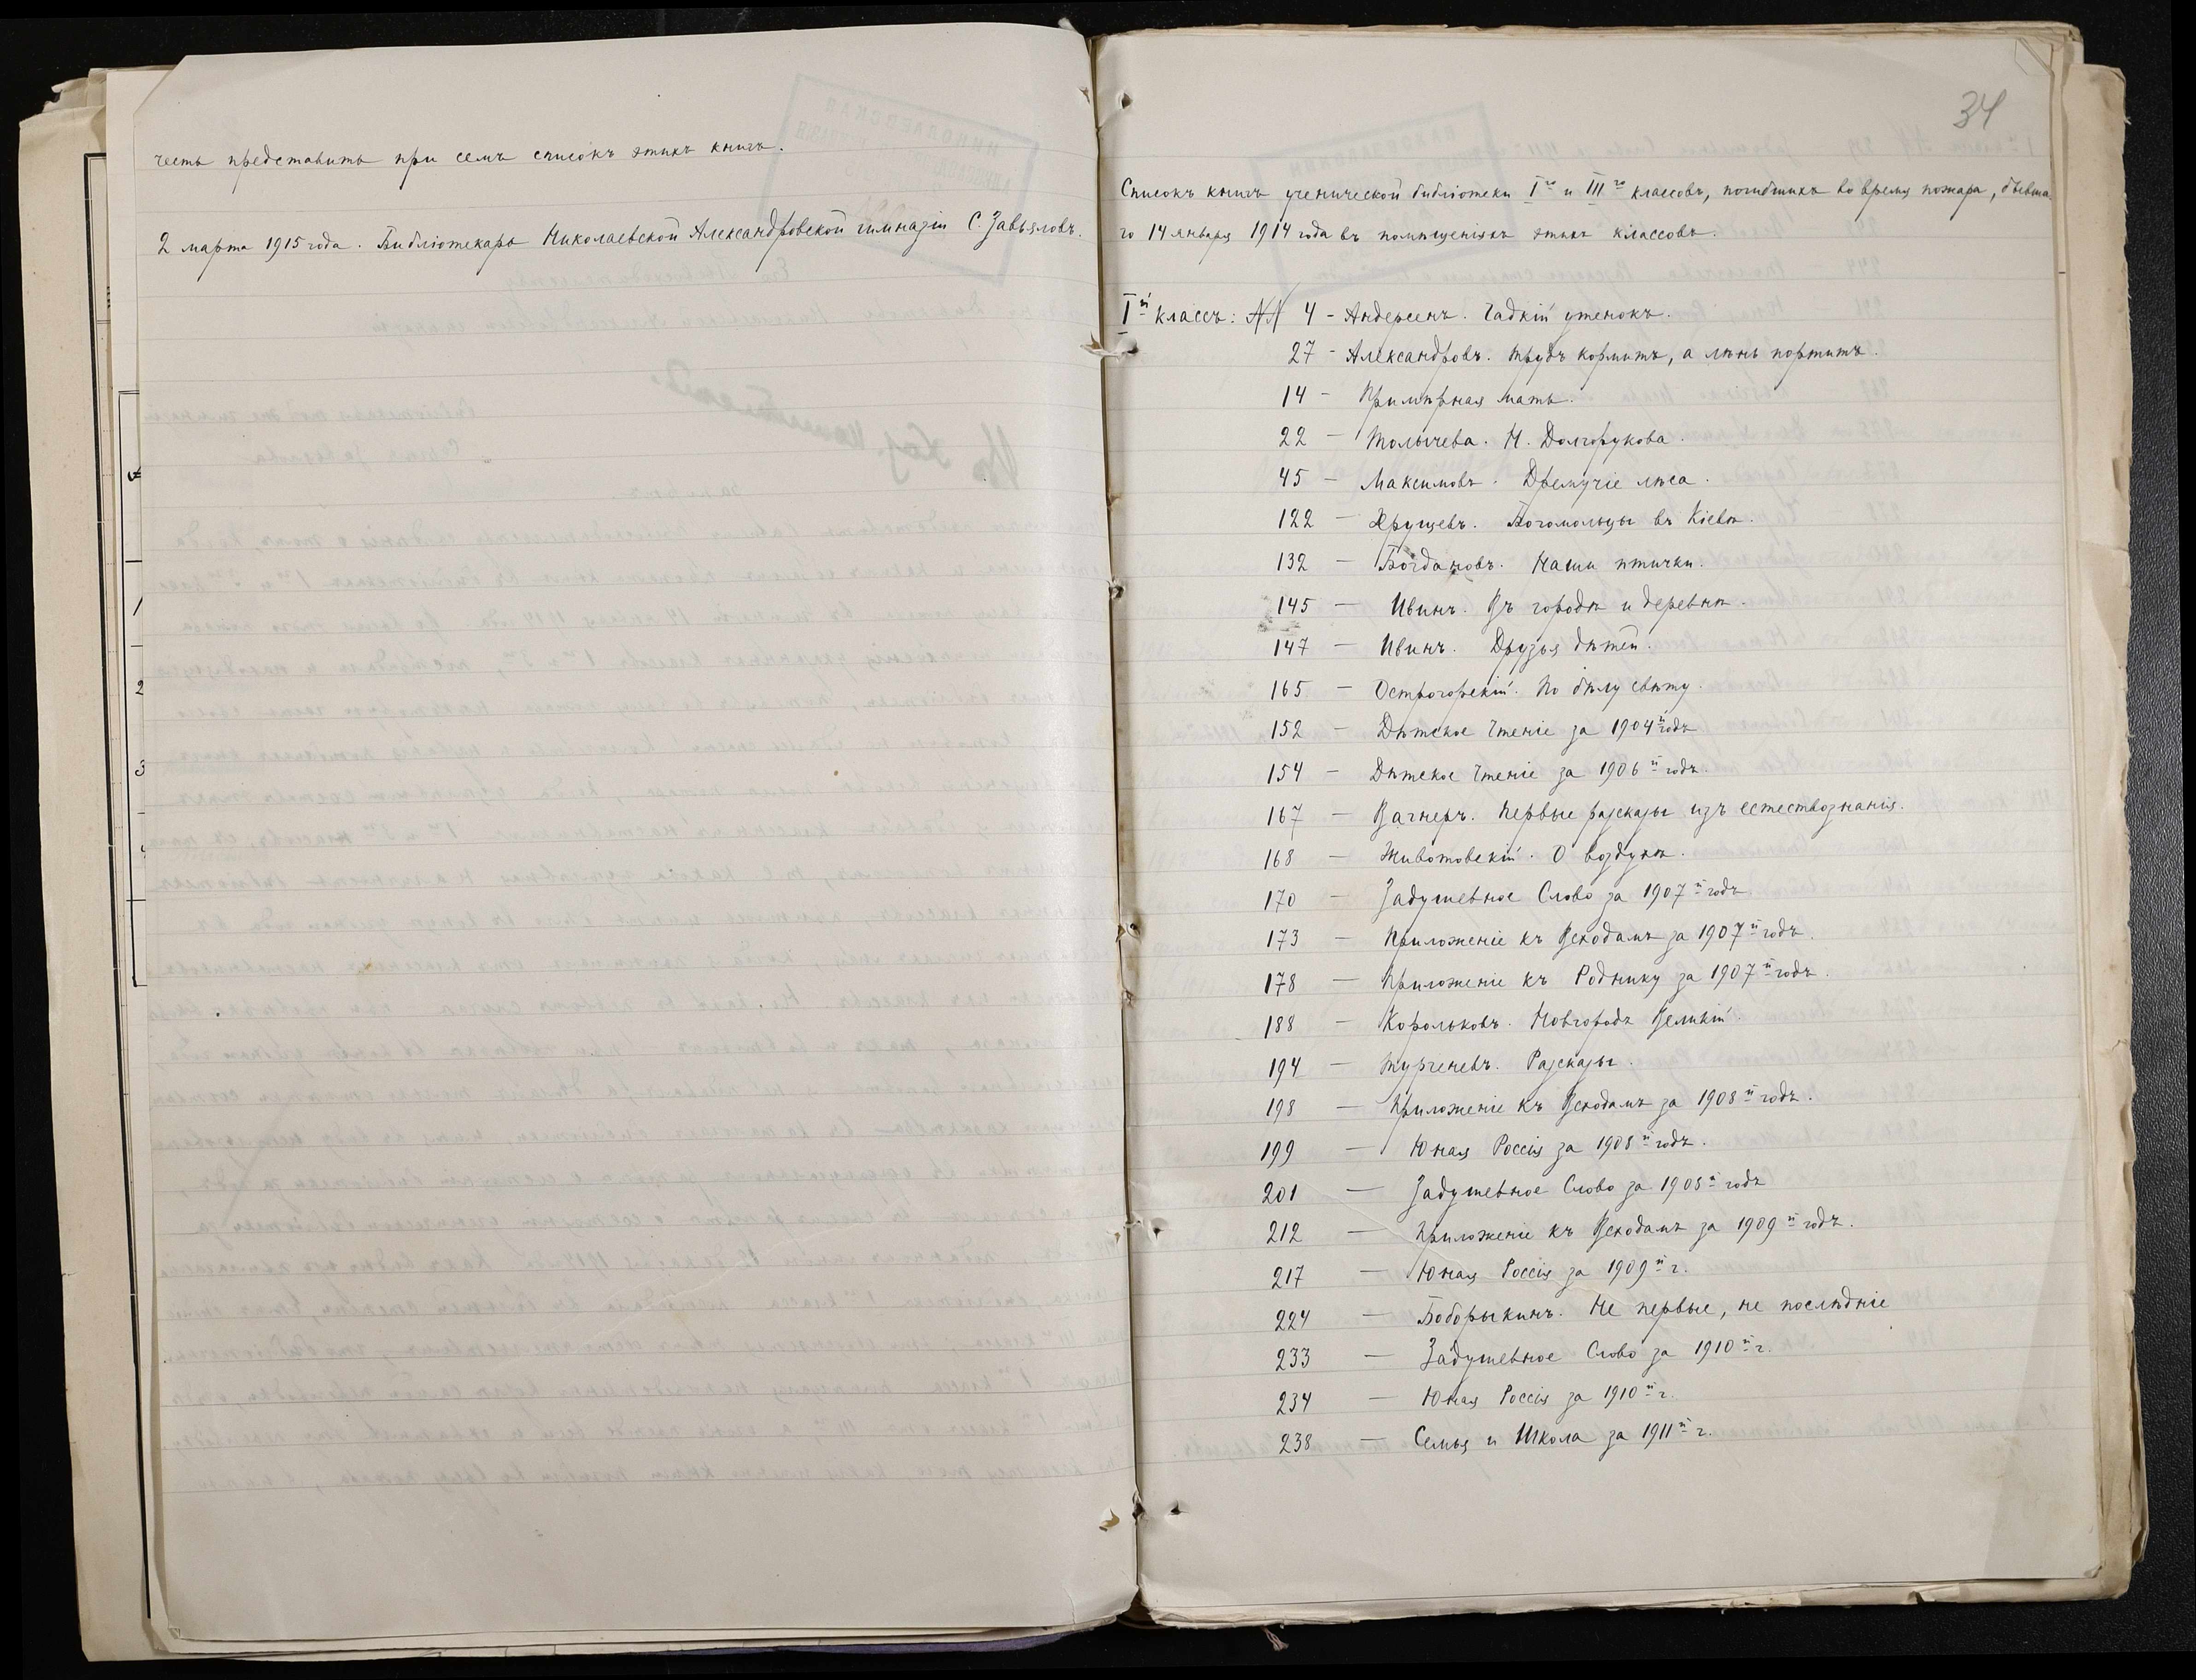 честь представить при семъ списокъ этихъ книгъ.
2 марта 1915 года. Библіотекарь Николаевской Александровской гимназіи С. Завьяловъ.
34
Списокъ книгъ ученической библіотеки I го и III го классовъ, погибшихъ во время пожара, бывша-
го 14 января 1914 года въ помѣщеніяхъ этихъ классовъ.
I й классъ: №№ 4 - Андерсенъ. Гадкій утенокъ.
27 - Александровъ. Трудъ кормитъ, а лѣнь портитъ.
14 - Примѣрная мать.
22 - Толычева. Н. Долгорукова.
45 - Максимовъ. Дремучіе лѣса.
122 - Хрущевъ. Богомольцы въ Кіевѣ.
132 - Богдановъ. Наши птички.
145 - Ивинъ. Въ городѣ и деревнѣ.
147 - Ивинъ. Друзья дѣтей.
165 - Острогорскій. По бѣлу свѣту.
152 - Дѣтское Чтеніе за 1904 й годъ
154 - Дѣтское Чтеніе за 1906 й годъ.
167 - Вагнеръ. Первые разсказы изъ естествознанія.
168 - Животовскій. О воздухѣ.
170 - Задушевное Слово за 1907 й годъ
173 - Приложеніе къ Всходамъ за 1907 й годъ.
178 - Приложеніе къ Роднику за 1907 й годъ.
188 - Корольковъ. Новгородъ Великій.
194 - Тургеневъ. Разсказы.
198 - Приложеніе къ Всходамъ за 1908 й годъ.
199 - Юная Россія за 1908 й годъ.
201 - Задушевное Слово за 1908 й годъ
212 - Приложеніе къ Всходамъ за 1909 й годъ.
217 - Юная Россія за 1909 й г.
224 - Боборыкинъ. Не первые, не послѣдніе
233 - Задушевное Слово за 1910 й г.
234 - Юная Россія за 1910 й г.
238 - Семья и Школа за 1911 й г.